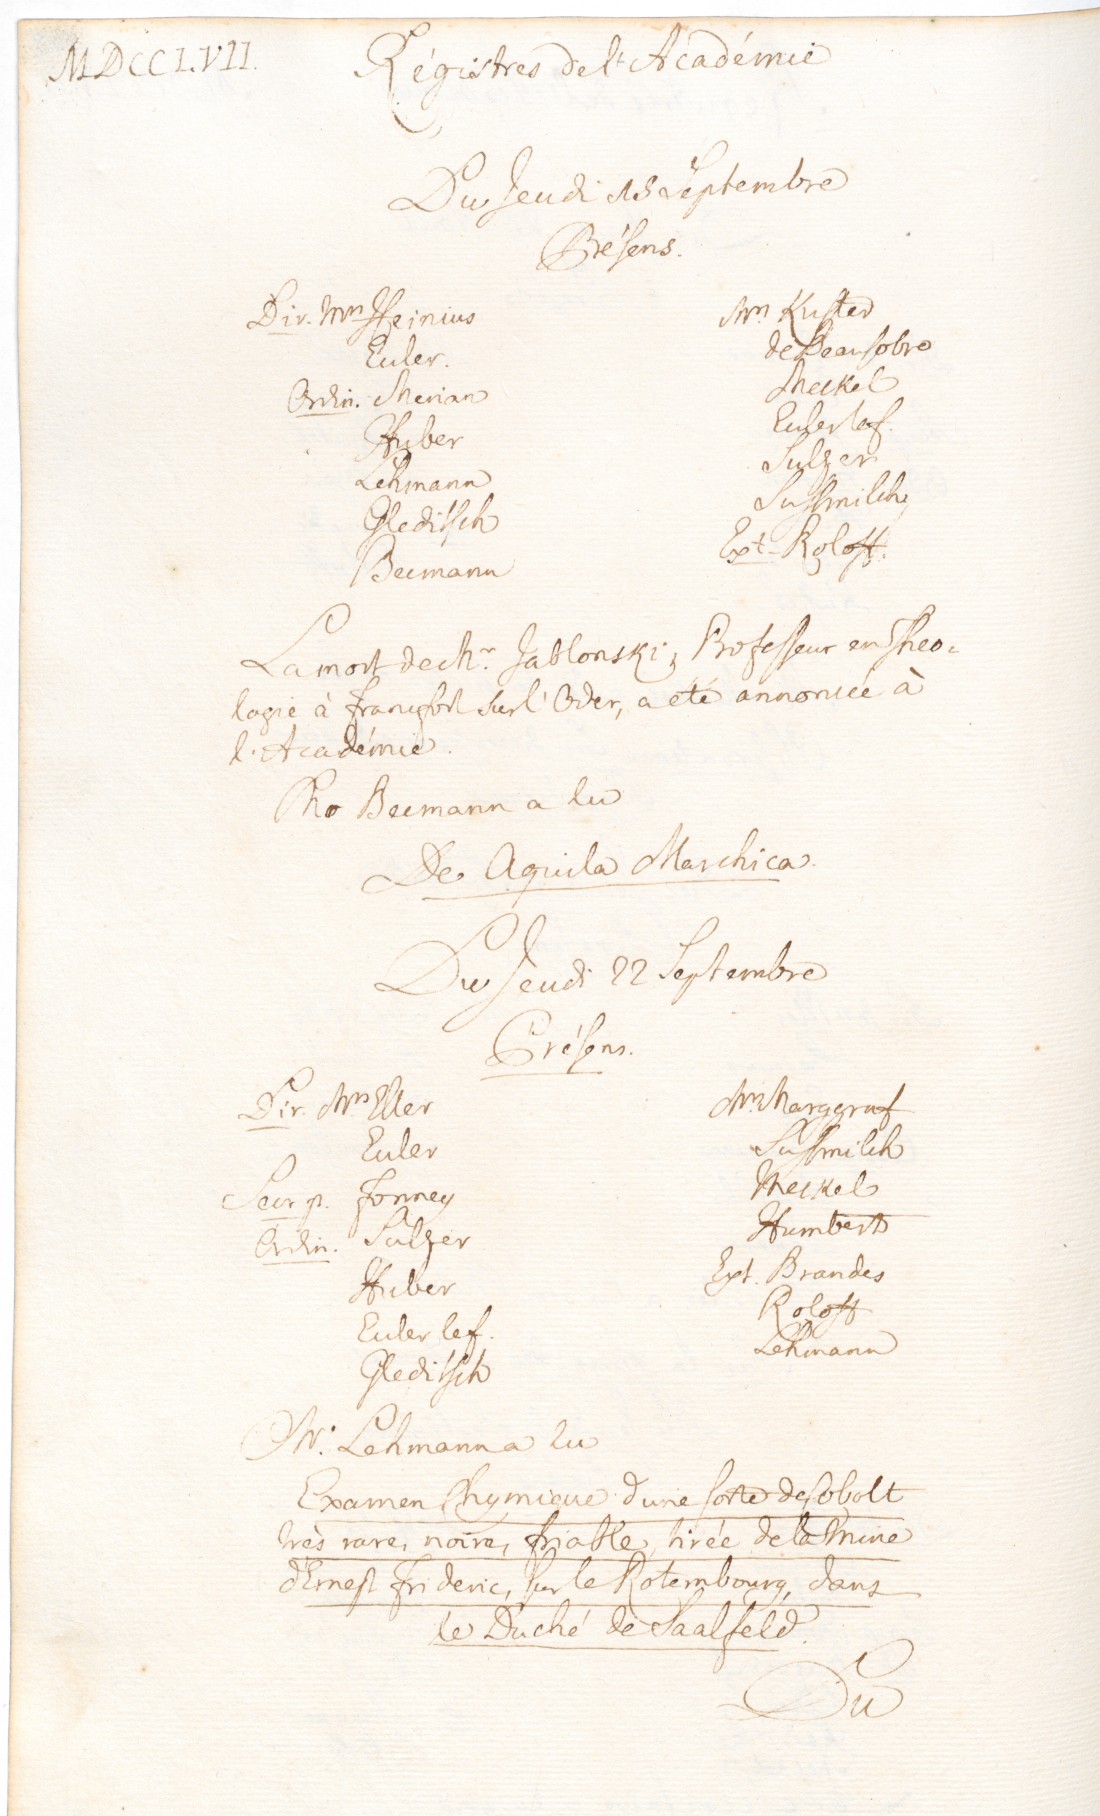 MDCCLVII.
Régistres de l'Académie
Du Jeudi 15 Septembre
Présens.
Dir. Mrs Heinius
Euler.
Ordin. Merian
Huber
Lehmann
Gleditsch
Becmann
Mrs Kuster
de Beausobre
Meckel
Euler le f.
Sulzer
Sussmilch
Ext. Roloff.
La mort de Mr. Jablonski, Professeur en Theo-
logie à Francfort sur l'Oder, a eté annoncée à
l'Académie.
Mr Becmann a lu
De Aquila Marchica.
Du Jeudi 22 Septembre
Présens.
Dir. Mrs Eller
Euler
Secr. p. Formey
Ordin. Sulzer
Huber
Euler le f.
Gleditsch
Mrs Marggraf
Sussmilch
Meckel
Humbert
Ext. Brandes
Roloff
Lehmann
Mr. Lehmann a lu
Examen Chymique d'une sorte de Cobolt
très rare, noire, friable, tirée de la Mine
d'Ernest Frideric, sur le Rotembourg, dans
le Duché de Saalfeld.
Du